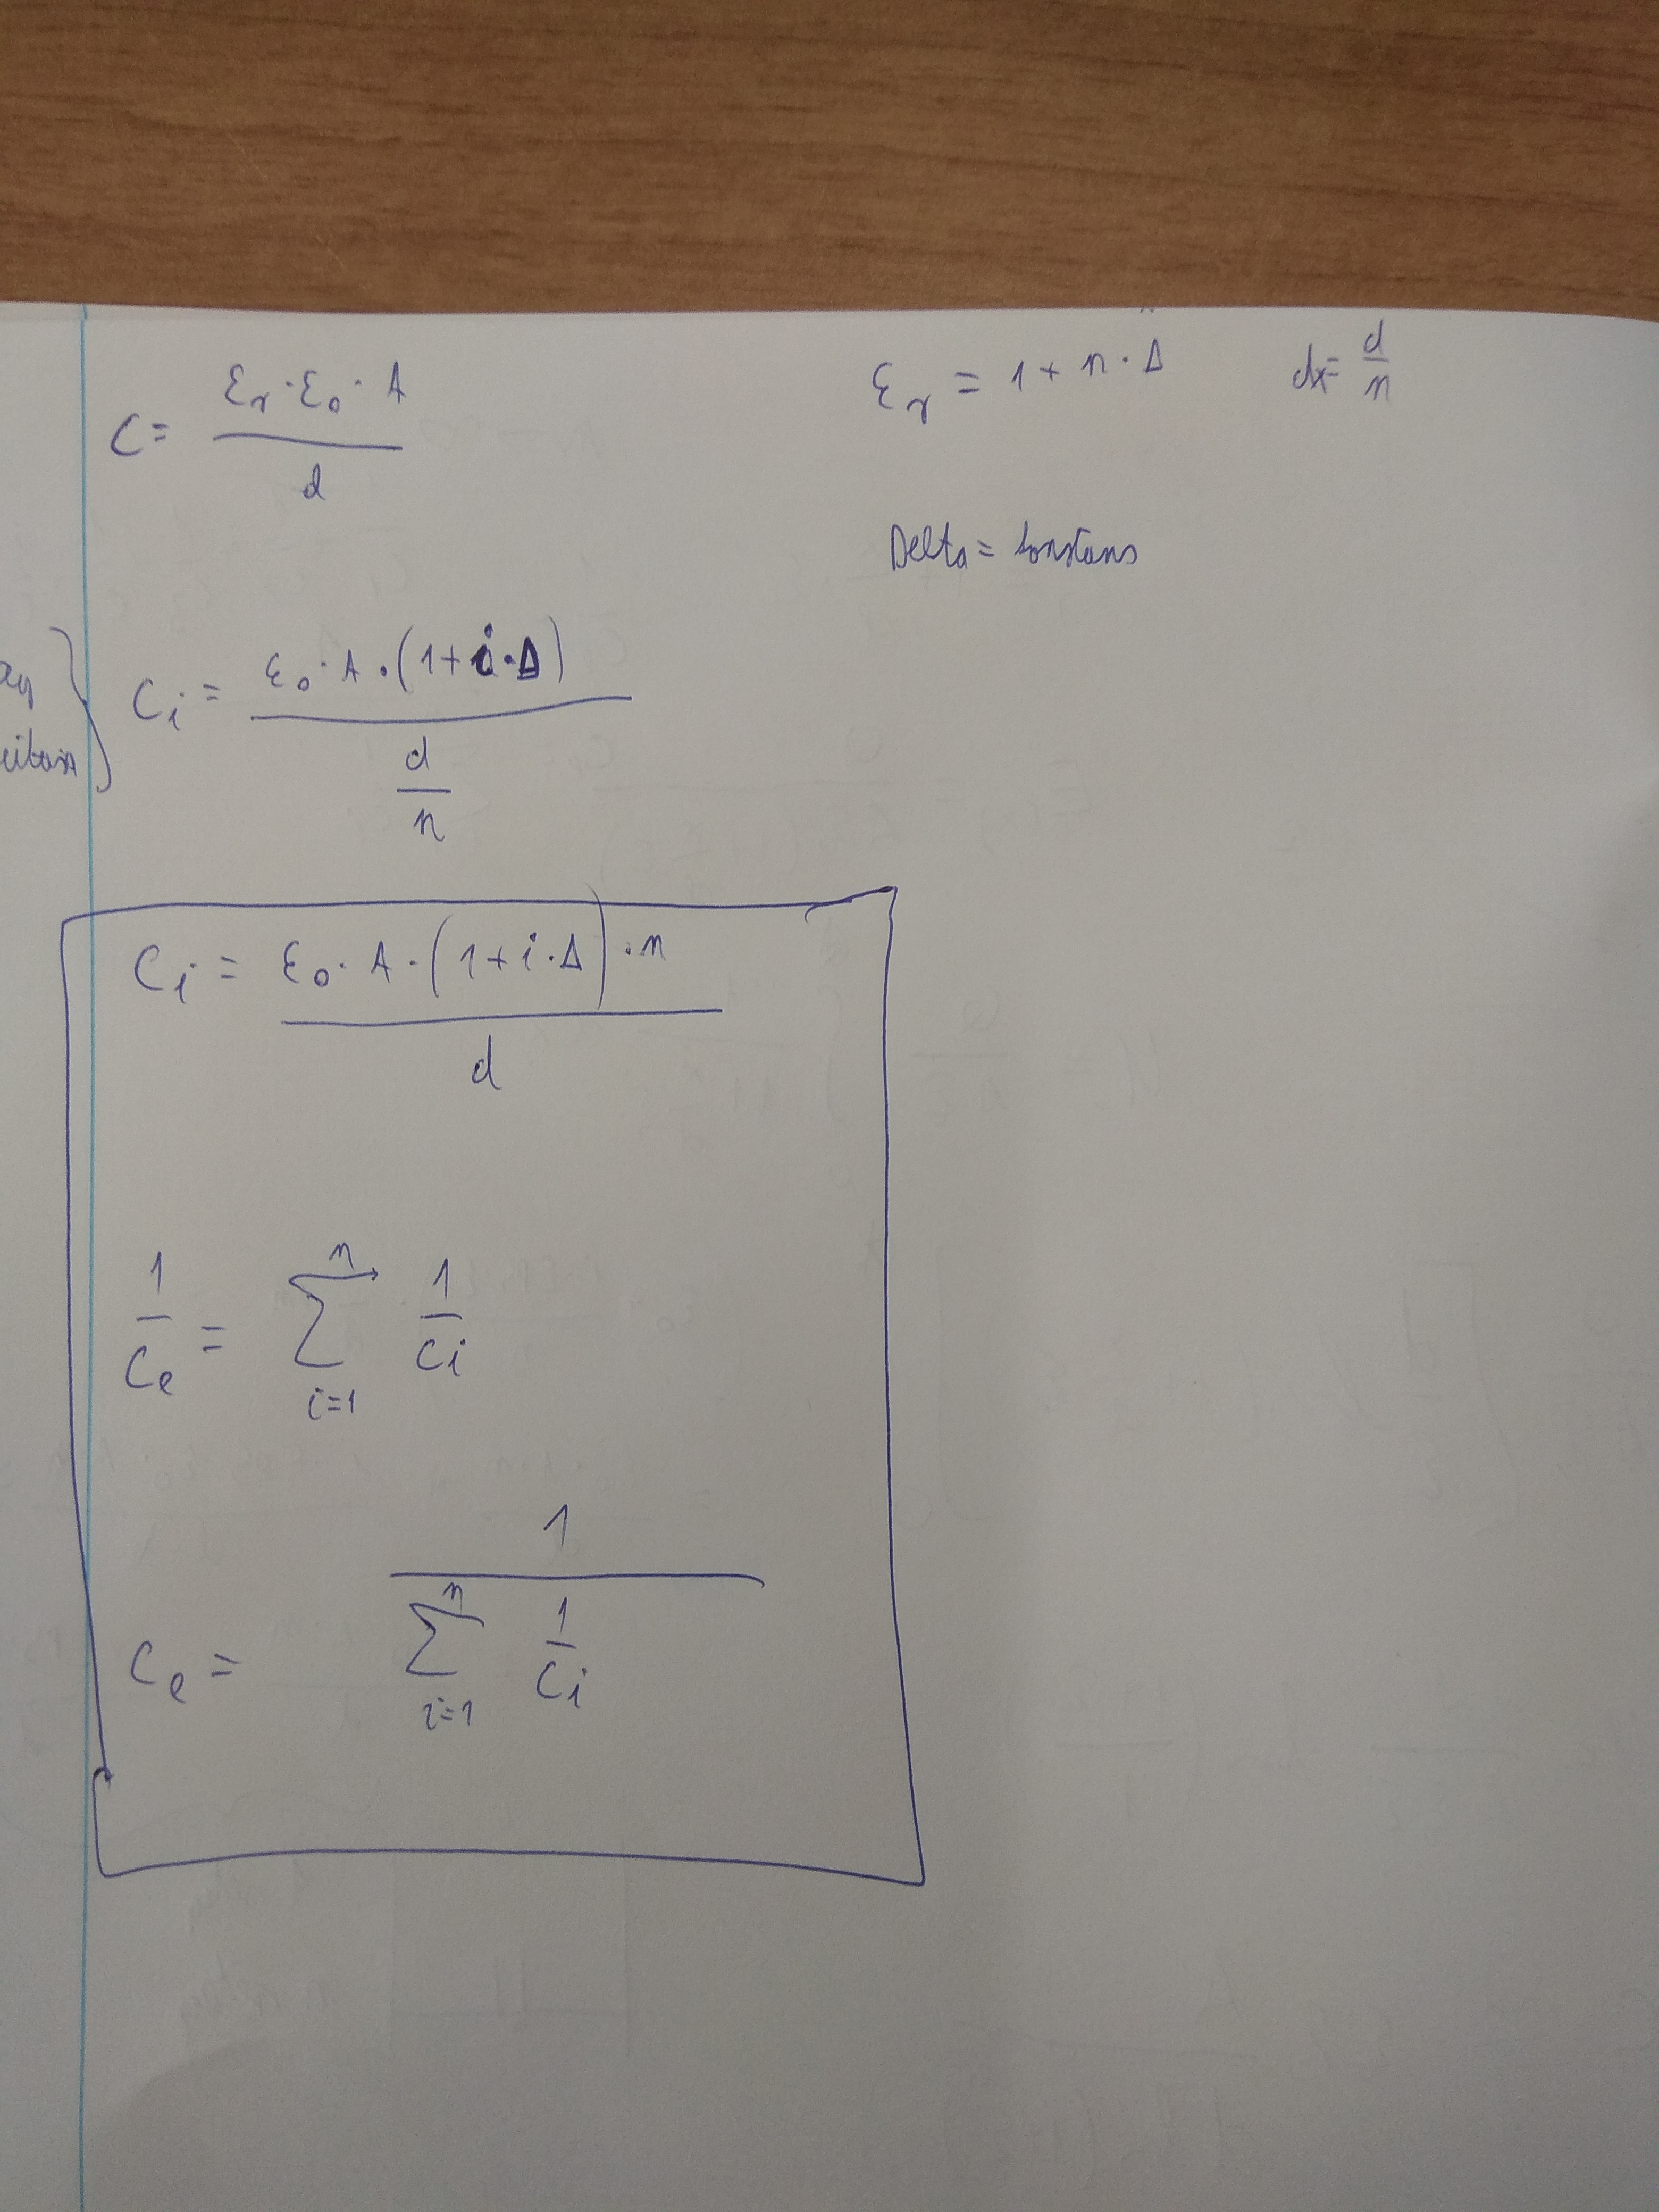 C = \frac{ε_r · ε_0 · A}{d}
ε_r = 1 + n · Δ
dx = \frac{d}{n}
Delta = konstans
C_i = \frac{ε_0 · A · (1 + i · Δ)}{\frac{d}{n}}
C_i = \frac{ε_0 · A · (1 + i · Δ) · n}{d}
\frac{1}{C_e} = \sum_{i=1}^{n} \frac{1}{C_i}
C_e = \frac{1}{\sum_{i=1}^{n} \frac{1}{C_i}}